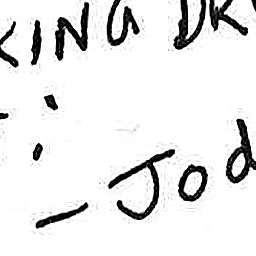 KING DR
- Jod